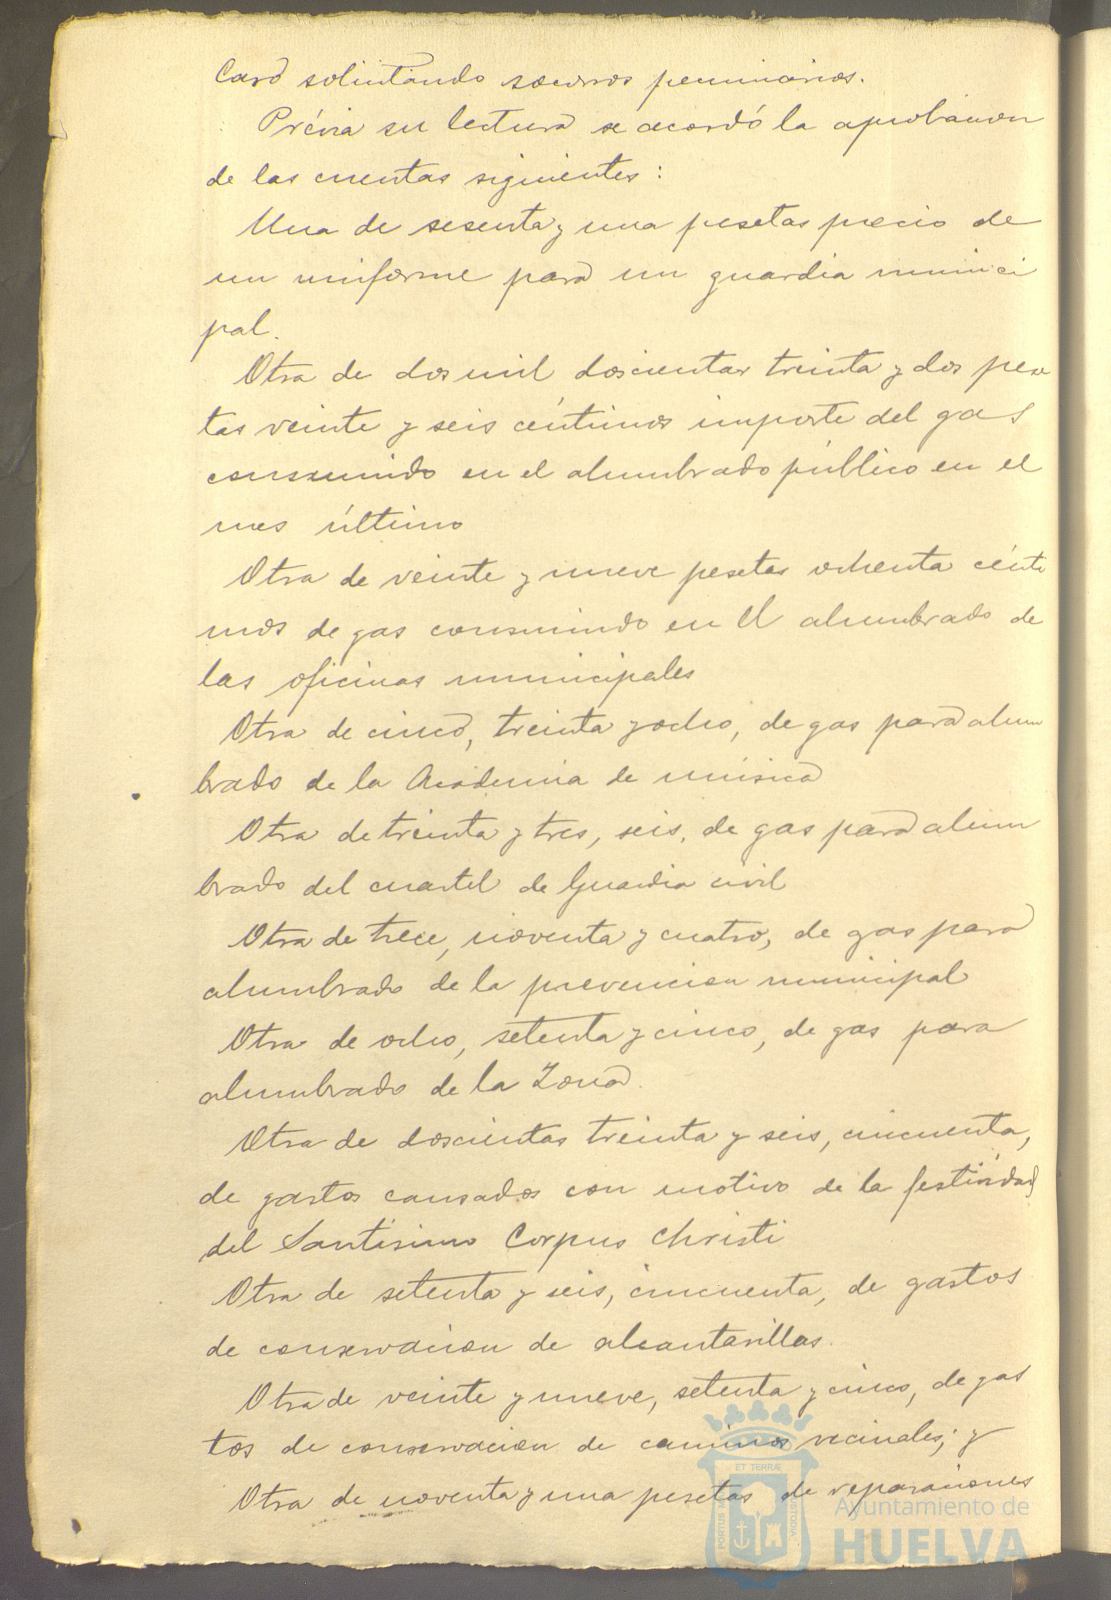 Caro solicitando socorros pecuniarios.
Prévia su lectura se acordó la aprobacion
de las cuentas siguientes:
Una de sesenta y una pesetas precio de
un uniforme para un guardia munici
pal.
Otra de dos mil doscientas treinta y dos pese
tas veinte y seis céntimos importe del gas
consumido en el alumbrado público en el
mes último
Otra de veinte y nueve pesetas ochenta cénti
mos de gas consumido en el alumbrado de
las oficinas municipales
Otra de cinco, treinta y ocho, de gas para alum
brado de la Academia de música
Otra de treinta y tres, seis, de gas para alum
brado del cuartel de Guardia civil
Otra de trece, noventa y cuatro, de gas para
alumbrado de la prevencion municipal
Otra de ocho, setenta y cinco, de gas para
alumbrado de la Zona.
Otra de doscientas treinta y seis, cincuenta,
de gastos causados con motivo de la festividad
del Santísimo Corpus Christi
Otra de setenta y seis, cincuenta, de gastos
de conservacion de alcantarillas.
Otra de veinte y nueve, setenta y cinco, de gas
tos de conservacion de caminos vecinales; y
Otra de noventa y una pesetas de reparaciones
PORTUS MARIS ET TERRÆ CUSTODIA
Ayuntamiento de
HUELVA